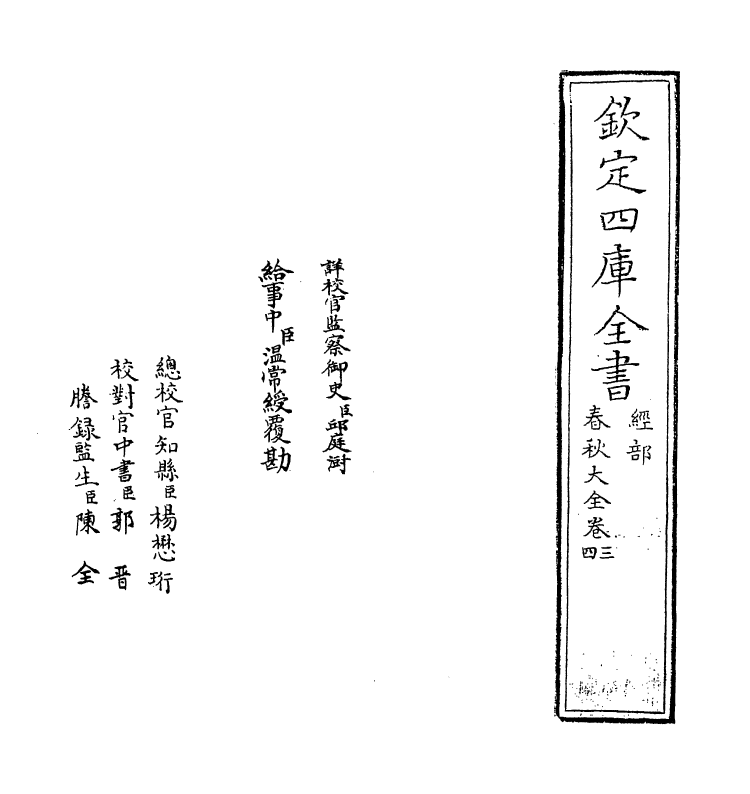 欽定四庫全書
經部
春秋大全卷三四
詳校官監察御史臣邱庭漋
給事中臣温常綬覆勘
總校官知縣臣楊懋珩
校對官中書臣郭晋
謄録監生臣陳全